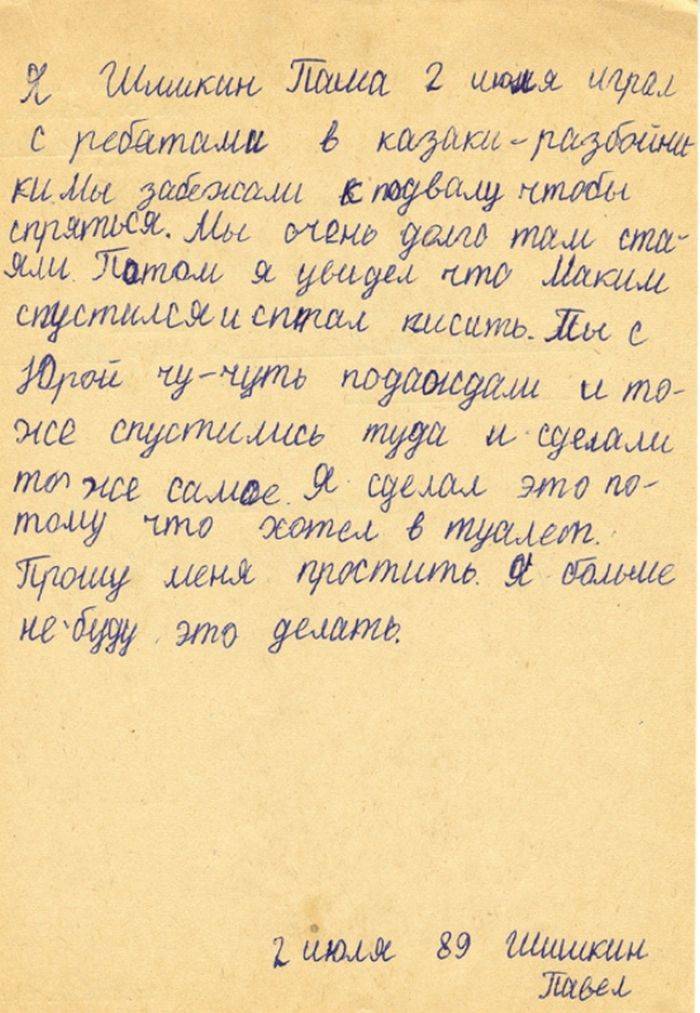 Я Шишкин Паша 2 июля играл
с ребятами в казаки-разбойни-
ки. Мы забежали к подвалу чтобы
спряться. Мы очень долго там ста-
яли. Потом я увидел что Маким
спустился и стал кисить. Мы с
Юрой чу-чуть подаждали и то-
же спустились туда и сделали
то же самое. Я сделал это по-
тому что хотел в туалет.
Прошу меня простить. Я больше
не буду это делать.
2 июля 89 Шишкин
Павел